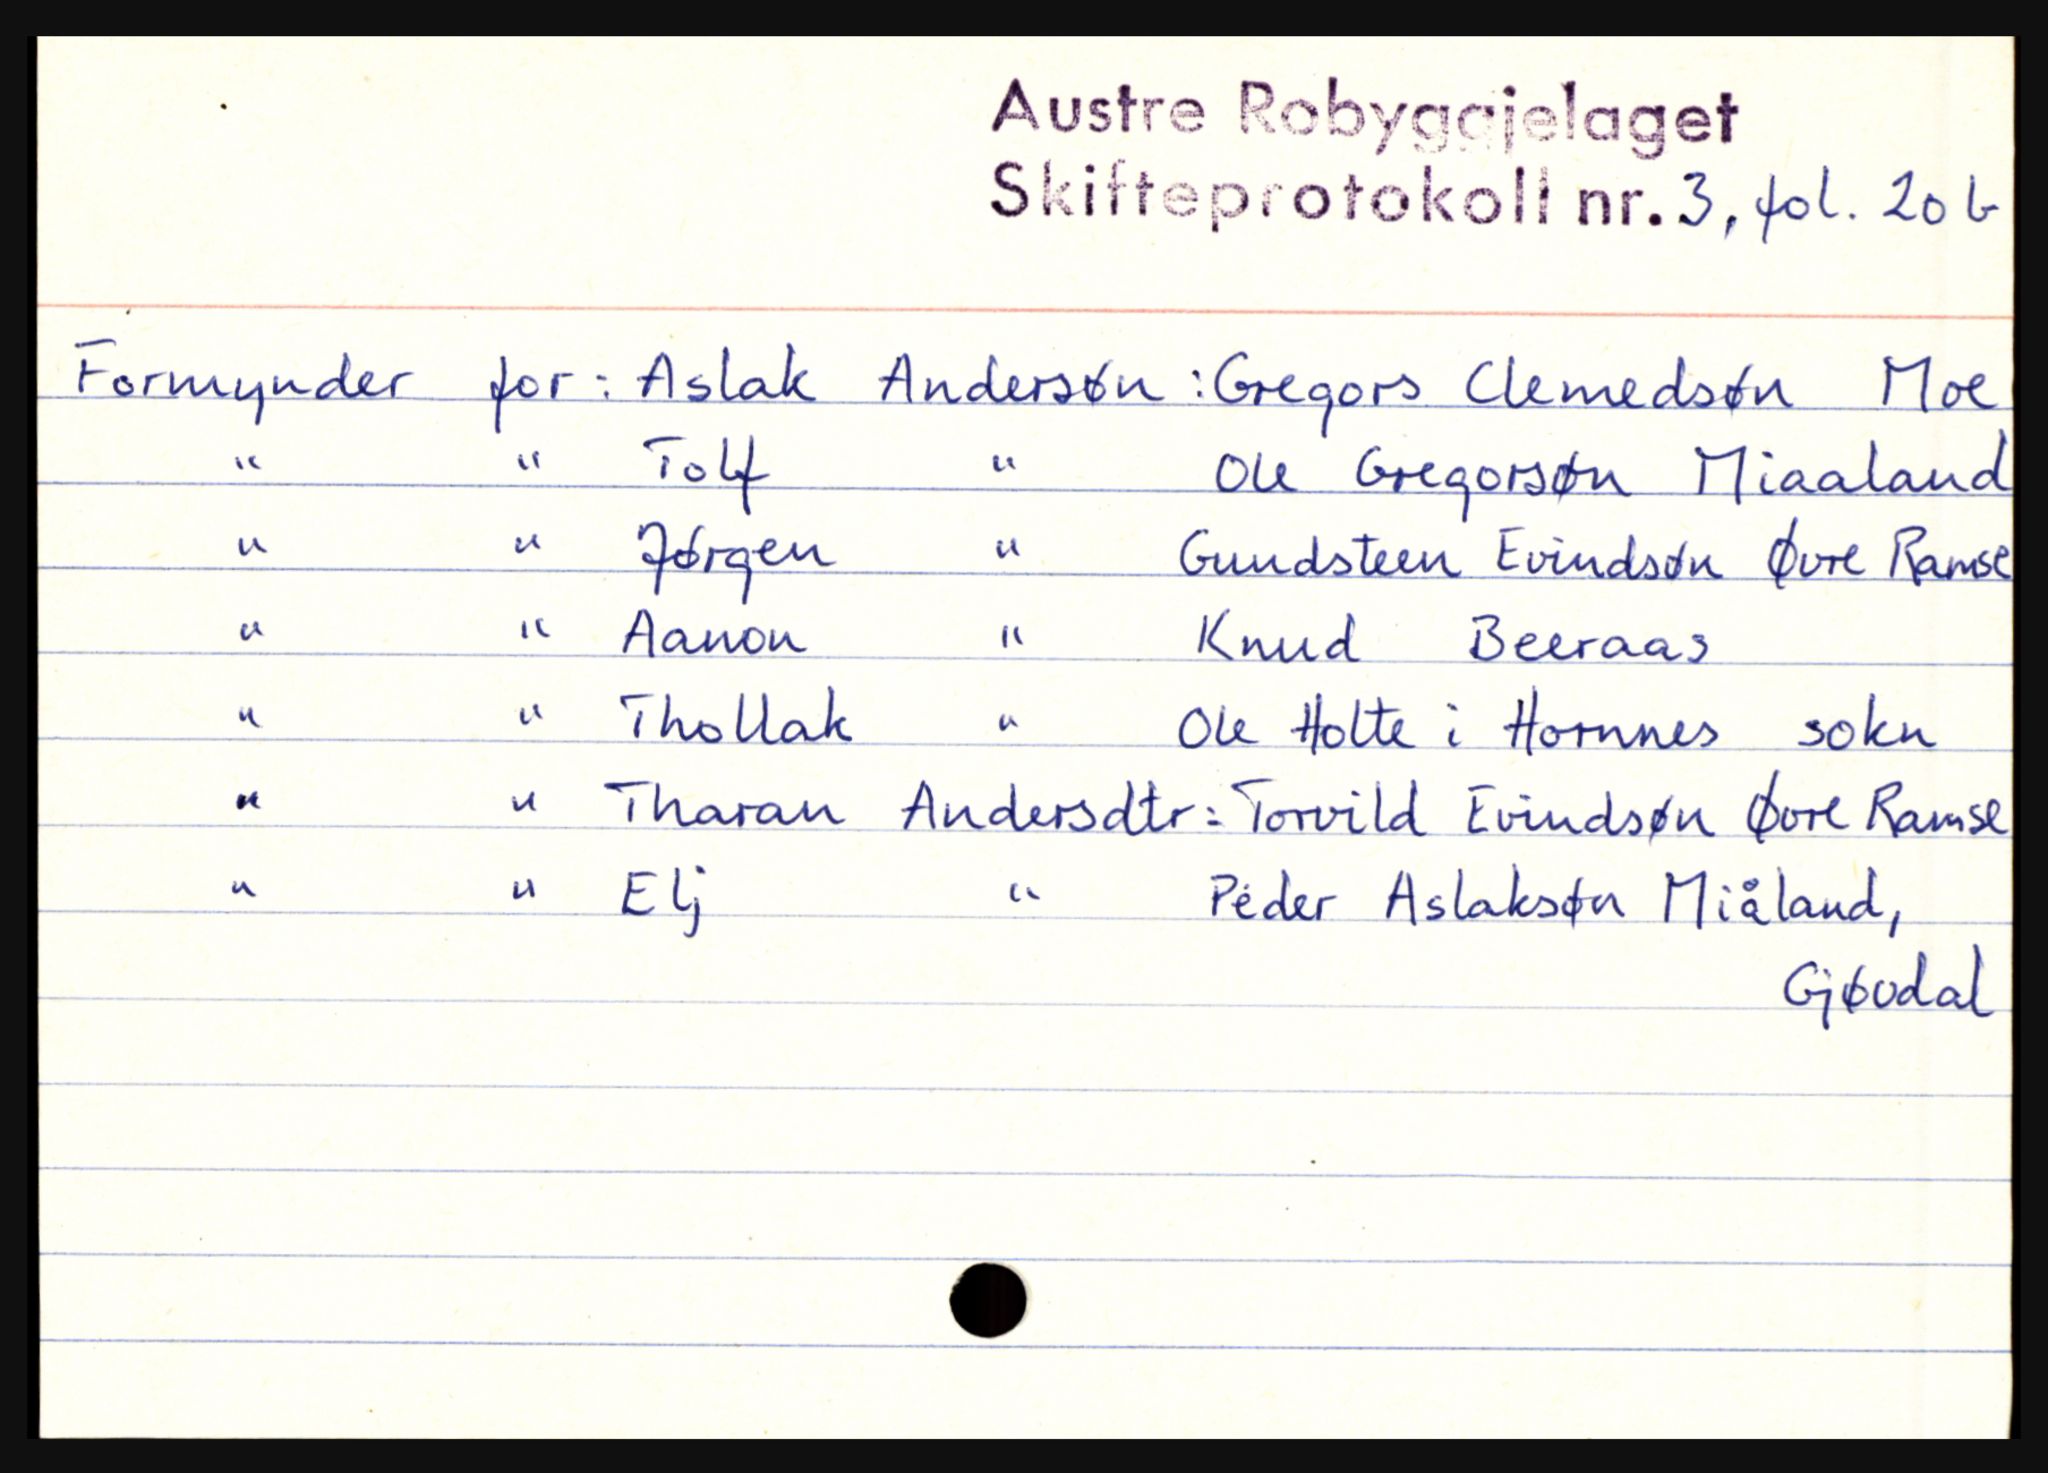 Austre Robyggjelaget
Skifteprotokoll nr. 3, fol. 20 b
Formynder for: Aslak Andersøn : Gregors Clemedsøn Moe
" " Tolf " Ole Gregorsøn Miaaland
" " Jørgen " Gundsteen Evindsøn Øvre Ramse
" " Aanon " Knud Beeraas
" " Thollak " Ole Holte i Hornnes sokn
" " Tharan Andersdtr: Torvild Evindsøn Øvre Ramse
" " Elj " Peder Aslaksøn Miåland,
Gjøvdal